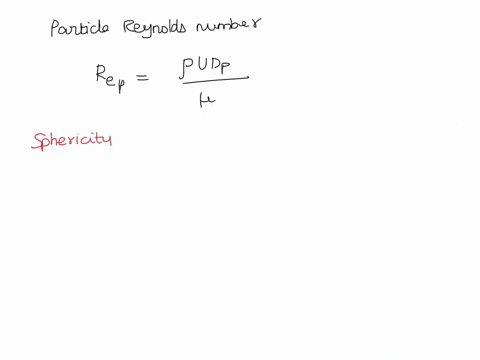 Particle Reynolds number
Rep = ρUDp / μ
Sphericity